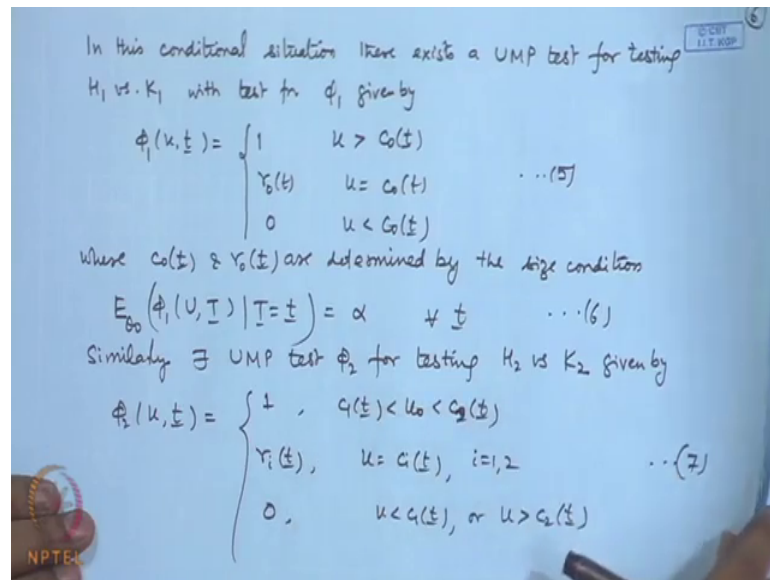 6
© CET
I.I.T. KGP
In this conditional situation there exists a UMP test for testing
H₁ vs. K₁ with test fn ϕ₁ given by
ϕ₁(u, t) = { 1 u > c₀(t)
γ₀(t) u = c₀(t) ...(5)
0 u < c₀(t)
where c₀(t) & γ₀(t) are determined by the size condition
E_θ₀ (ϕ₁(U, T) | T = t) = α ∀ t ...(6)
Similarly ∃ UMP test ϕ₂ for testing H₂ vs K₂ given by
ϕ₂(u, t) = { 1, c₁(t) < u₀ < c₂(t)
γᵢ(t), u = cᵢ(t), i=1,2 ...(7)
0, u < c₁(t), or u > c₂(t)
NPTEL